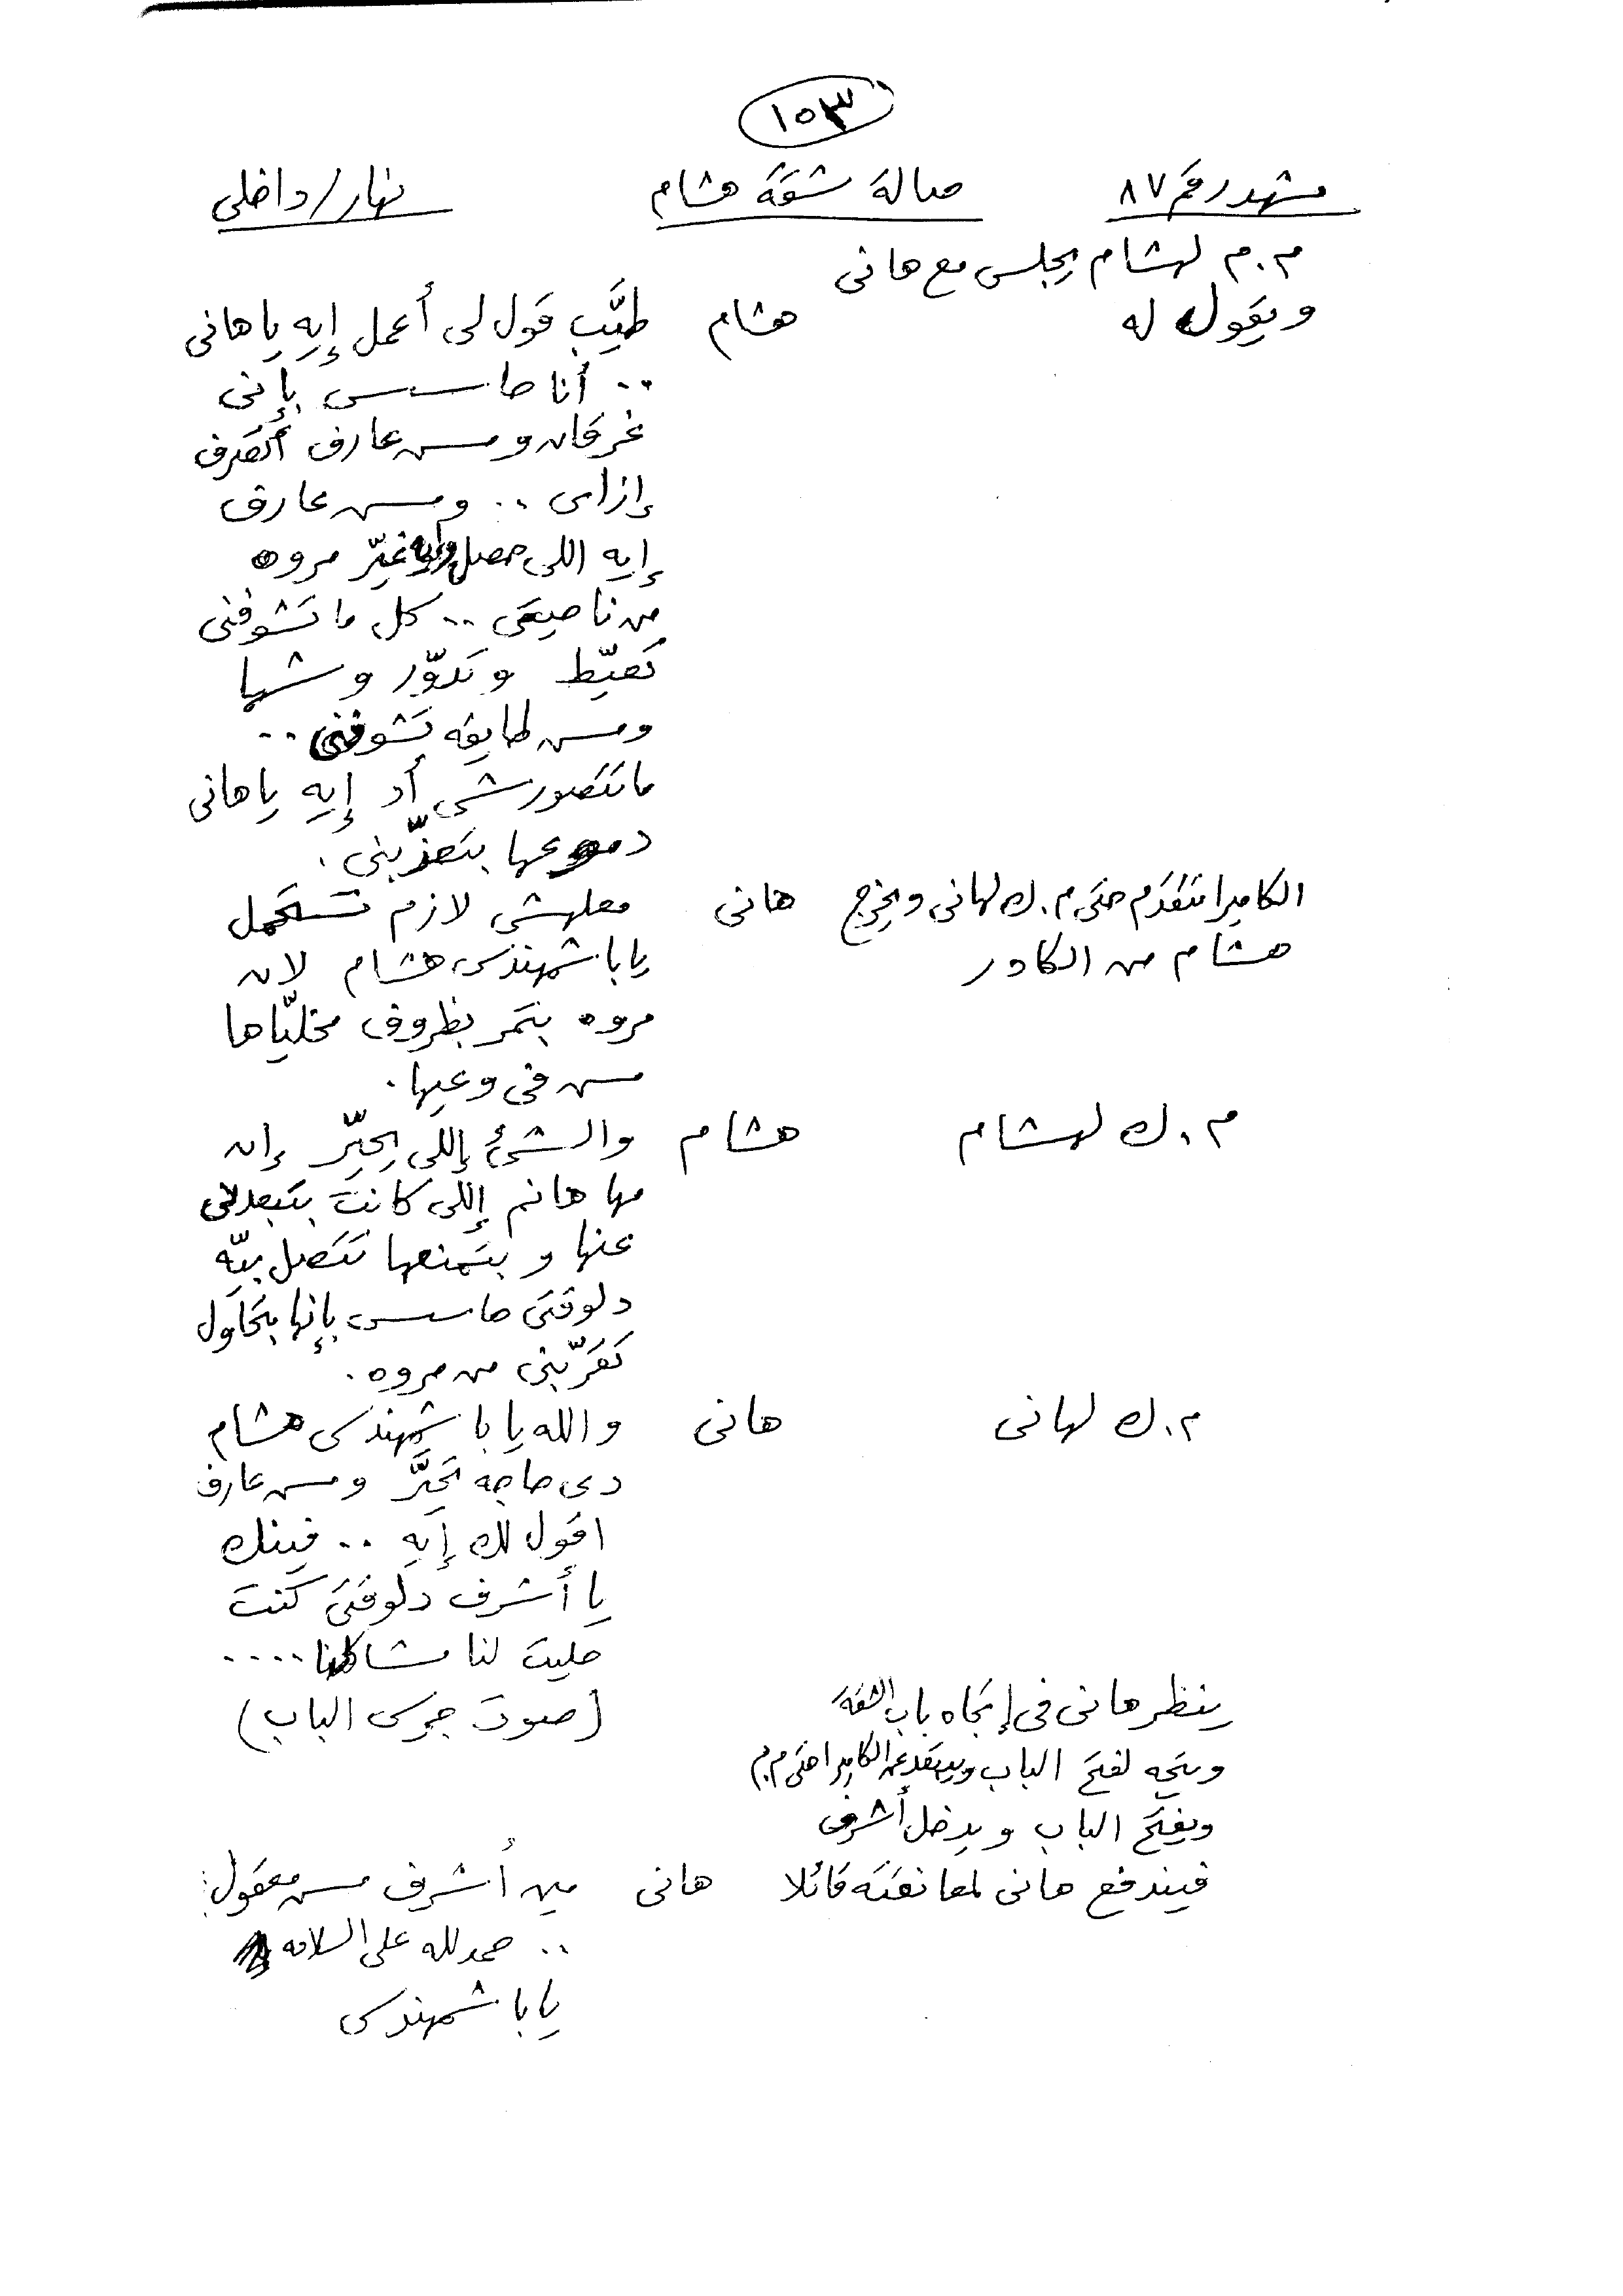 ١٥٣
مشهد رقم ٨٧ صالة شقة هشام نهار/داخلى
م.م لهشام يجلس مع هانى
ويقول له هشام طيَّب قول لى أعمل إيه ياهانى
.. أنا حاسس بإنى
غرقان ومش عارف أتصرف
إزاى .. ومش عارف
إيه اللى حصل وايه غيّر مروه
من ناحيتى .. كل ما تشوفنى
تعيّط وتدوّر وشها
ومش طايقه تشوفنى ..
ماتتصورشى أد إيه ياهانى
دموعها بتعذّبنى .
الكاميرا تتقدم حتى م.ك لهانى ويخرج هانى معلهشى لازم تستحمل
هشام من الكادر يا باشمهندس هشام لان
مروه بتمر بظروف مخليّاها
مش فى وعيها .
م.ك لهشام هشام والشئ إللى يحيّر إن
مها هانم إللى كانت بتبعدنى
عنها و بتمنعها تتصل بيّه
دلوقتى حاسس بإنها بتحاول
تقرّبنى من مروه .
م.ك لهانى هانى والله يا باشمهندس هشام
دى حاجه تحيَّر ومش عارف
اقول لك إيه .. فينك
يا أشرف دلوقتى كنت
حليت لنا مشاكلنا ....
ينظر هانى فى إتجاه باب الشقة (صوت جرس الباب)
ويتجه لفتح الباب وتتقدم الكاميرا حتى م.م
ويفتح الباب ويدخل أشرف
فيندفع هانى لمعانقته قائلا هانى مين أشرف مش معقول
.. حمدلله على السلامه
يا باشمهندس